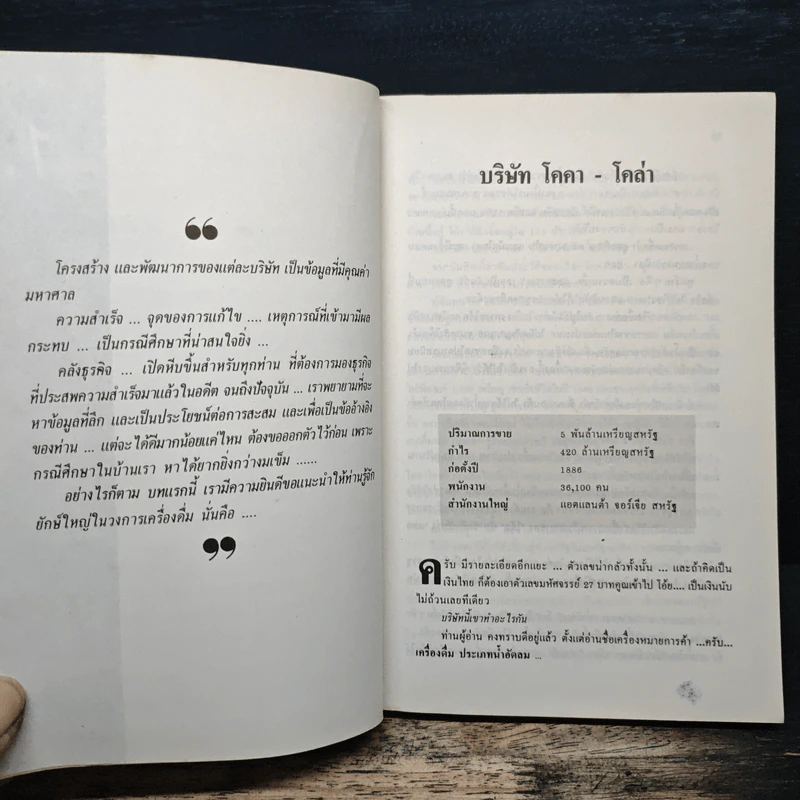 “
โครงสร้าง และพัฒนาการของแต่ละบริษัท เป็นข้อมูลที่มีคุณค่า
มหาศาล
ความสำเร็จ ... จุดของการแก้ไข .... เหตุการณ์ที่เข้ามามีผล
กระทบ ... เป็นกรณีศึกษาที่น่าสนใจยิ่ง ...
คลังธุรกิจ ... เปิดหีบขึ้นสำหรับทุกท่าน ที่ต้องการมองธุรกิจ
ที่ประสพความสำเร็จมาแล้วในอดีต จนถึงปัจจุบัน ... เราพยายามที่จะ
หาข้อมูลที่ลึก และเป็นประโยชน์ต่อการสะสม และเพื่อเป็นข้ออ้างอิง
ของท่าน ... แต่จะ ได้ดีมากน้อยแค่ไหน ต้องขอออกตัวไว้ก่อน เพราะ
กรณีศึกษาในบ้านเรา หาได้ยากยิ่งกว่างมเข็ม ......
อย่างไรก็ตาม บทแรกนี้ เรามีความยินดีขอแนะนำให้ท่านรู้จัก
ยักษ์ใหญ่ในวงการเครื่องดื่ม นั่นคือ ....
”
บริษัท โคคา - โคล่า
ปริมาณการขาย 5 พันล้านเหรียญสหรัฐ
กำไร 420 ล้านเหรียญสหรัฐ
ก่อตั้งปี 1886
พนักงาน 36,100 คน
สำนักงานใหญ่ แอตแลนต้า จอร์เจีย สหรัฐ
ครับ มีรายละเอียดอีกแยะ ... ตัวเลขน่ากลัวทั้งนั้น ... และถ้าคิดเป็น
เงินไทย ก็ต้องเอาตัวเลขมหัศจรรย์ 27 บาทคูณเข้าไป โอ้ย.... เป็นเงินนับ
ไม่ถ้วนเลยทีเดียว
บริษัทนี้เขาทำอะไรกัน
ท่านผู้อ่าน คงทราบดีอยู่แล้ว ตั้งแต่อ่านชื่อเครื่องหมายการค้า ...ครับ...
เครื่องดื่ม ประเภทน้ำอัดลม ...